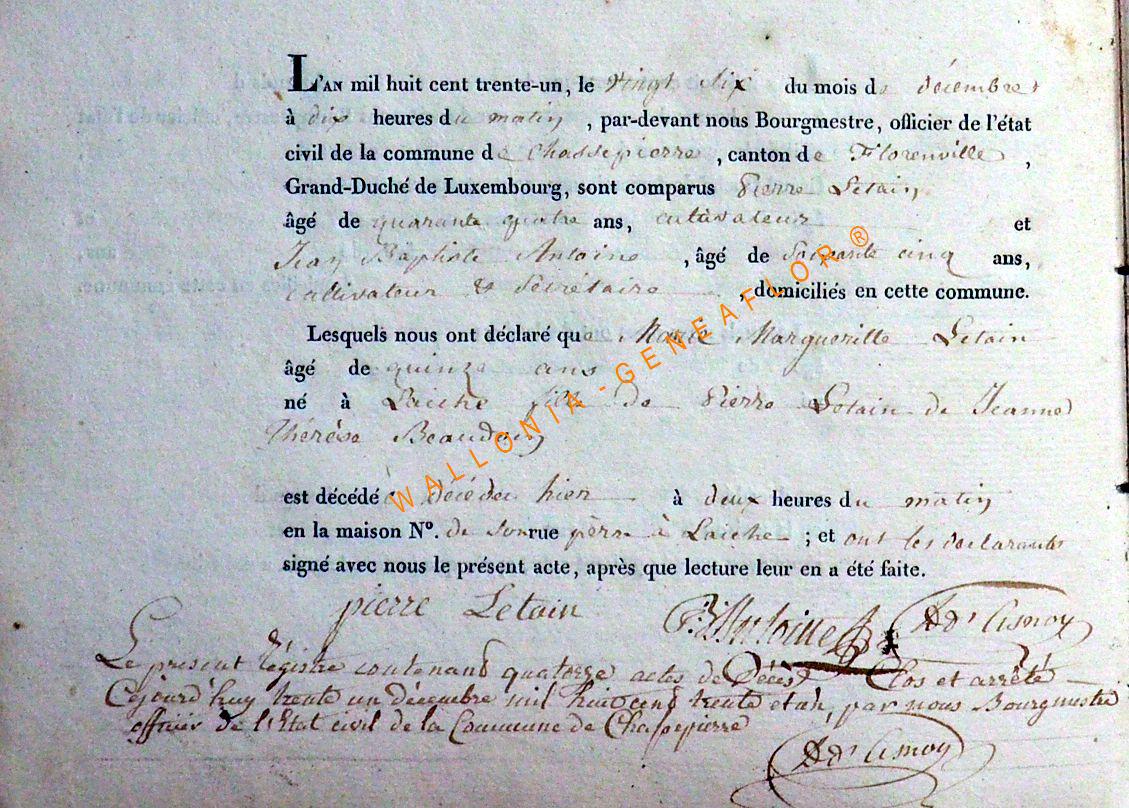 L'AN mil huit cent trente-un, le vingt dix du mois de décembre
à dix heures du matin, par-devant nous Bourgmestre, officier de l'état
civil de la commune de Chassepierre, canton de Florenville,
Grand-Duché de Luxembourg, sont comparus Pierre Letain
âgé de quarante quatre ans, cultivateur et
Jean Baptiste Antoine, âgé de soixante cinq ans,
cultivateur & Sécrétaire, domiciliés en cette commune.
Lesquels nous ont déclaré que Marie Margueritte Letain
âgé de quinze ans
né à Laiche fille de Pierre Letain de Jeanne
Thérése Beaudoin
est décédé décédée hier à deux heures du matin
en la maison N°. de son rue père à Laiche ; et ont les déclarants
signé avec nous le présent acte, après que lecture leur en a été faite.
pierre Letain JBAntoine Add Lamoy
Le present Régistre contenand quatorze actes de Décès Clos et arrêté
Cejourd'huy trente un Décembre mil huit cent trente et un, par nous Bourgmestre
officier de l'Etat civil de la Commune de Chassepierre
WALLONIA-GENEAFLOR®